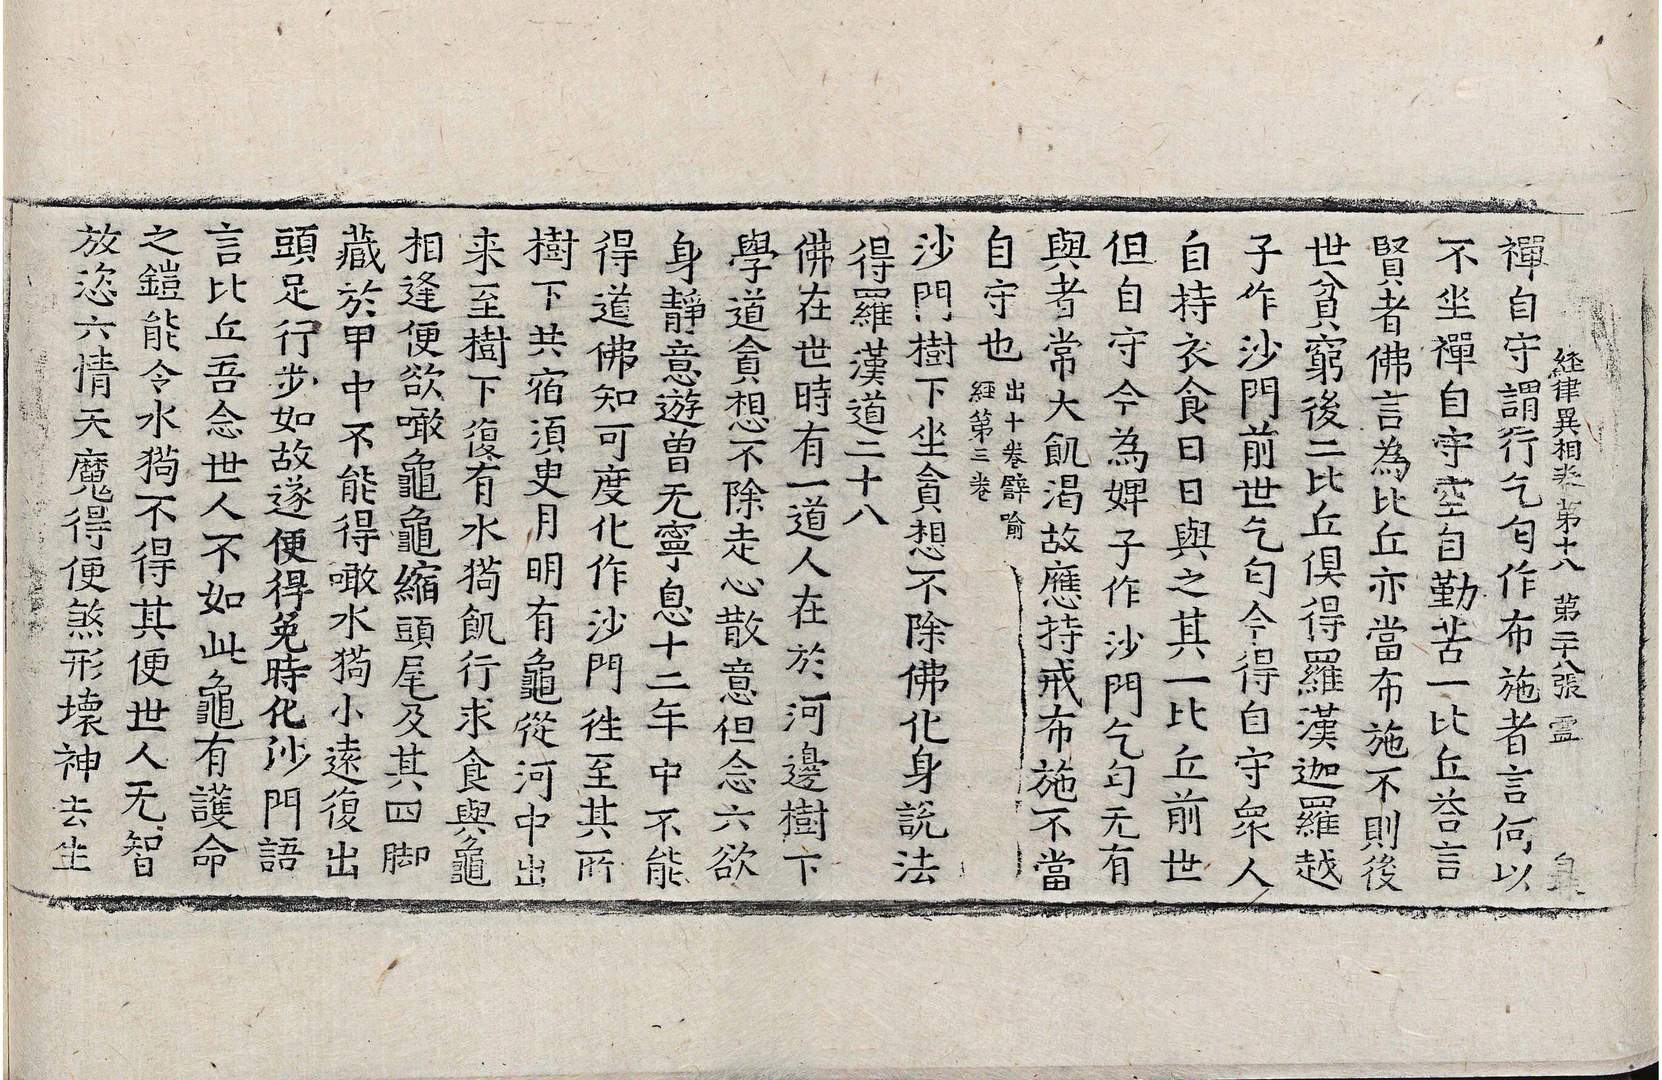 經律異相卷第十八　第二十八張　靈
禪自守謂行乞匃作布施者言何以
不坐禪自守空自勤苦一比丘荅言
賢者佛言為比丘亦當布施不則後
世貧窮後二比丘俱得羅漢迦羅越
子作沙門前世乞匃今得自守衆人
自持衣食日日與之其一比丘前世
但自守今為婢子作沙門乞匃无有
與者常大飢渴故應持戒布施不當
自守也出十卷譬喻
經第三卷
沙門樹下坐貪想不除佛化身說法
得羅漢道二十八
佛在世時有一道人在於河邊樹下
學道貪想不除走心散意但念六欲
身靜意遊曾无寧息十二年中不能
得道佛知可度化作沙門徃至其所
樹下共宿須臾月明有龜從河中出
来至樹下復有水猗飢行求食與龜
相逢便欲噉龜龜縮頭尾及其四脚
藏於甲中不能得噉水猗小遠復出
頭足行步如故遂便得免時化沙門語
言比丘吾念世人不如此龜有護命
之鎧能令水猗不得其便世人无智
放恣六情天魔得便煞形壞神去生